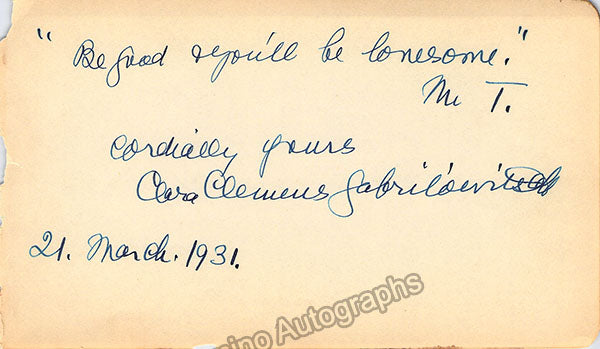 "Be good & you'll be lonesome."
M. T.
Cordially yours
Clara Clemens Gabrilówitsch
21. March. 1931.
ino Autographs